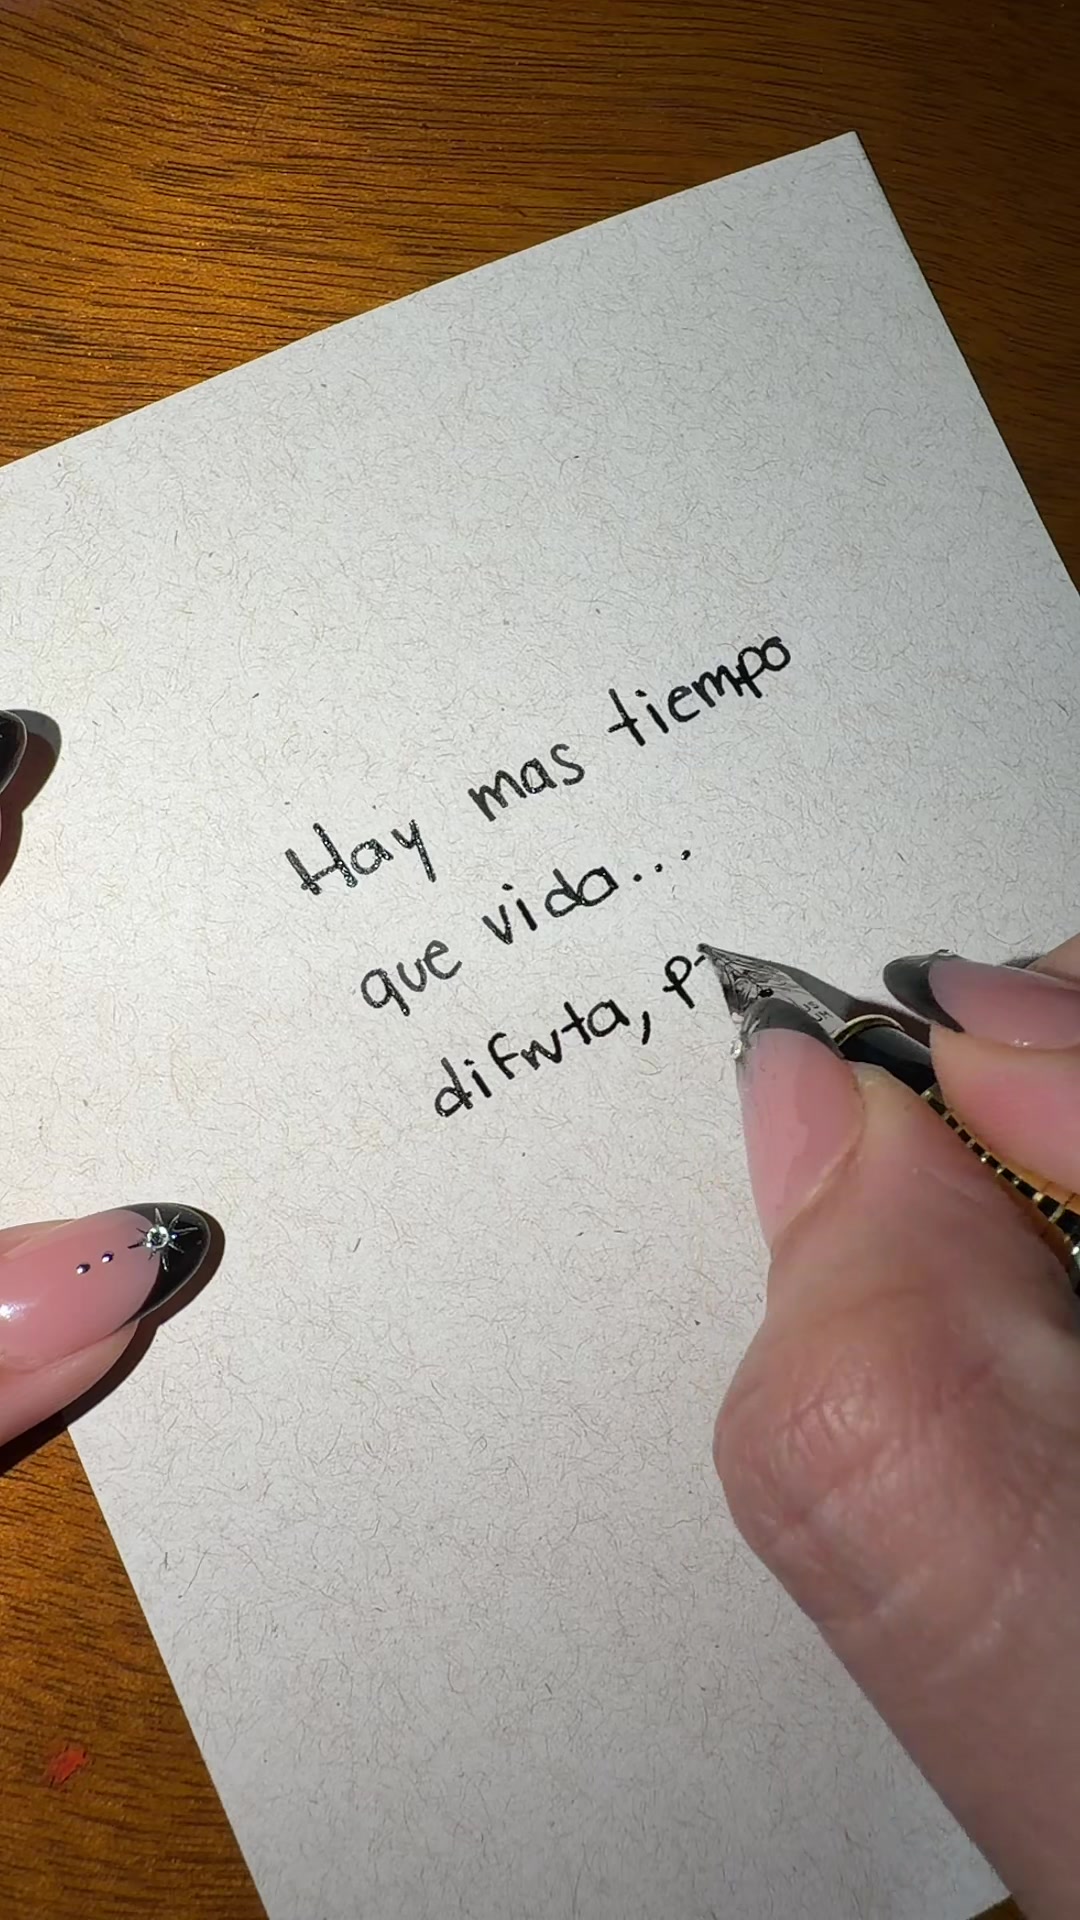 Hay mas tiempo
que vida...
difruta, p